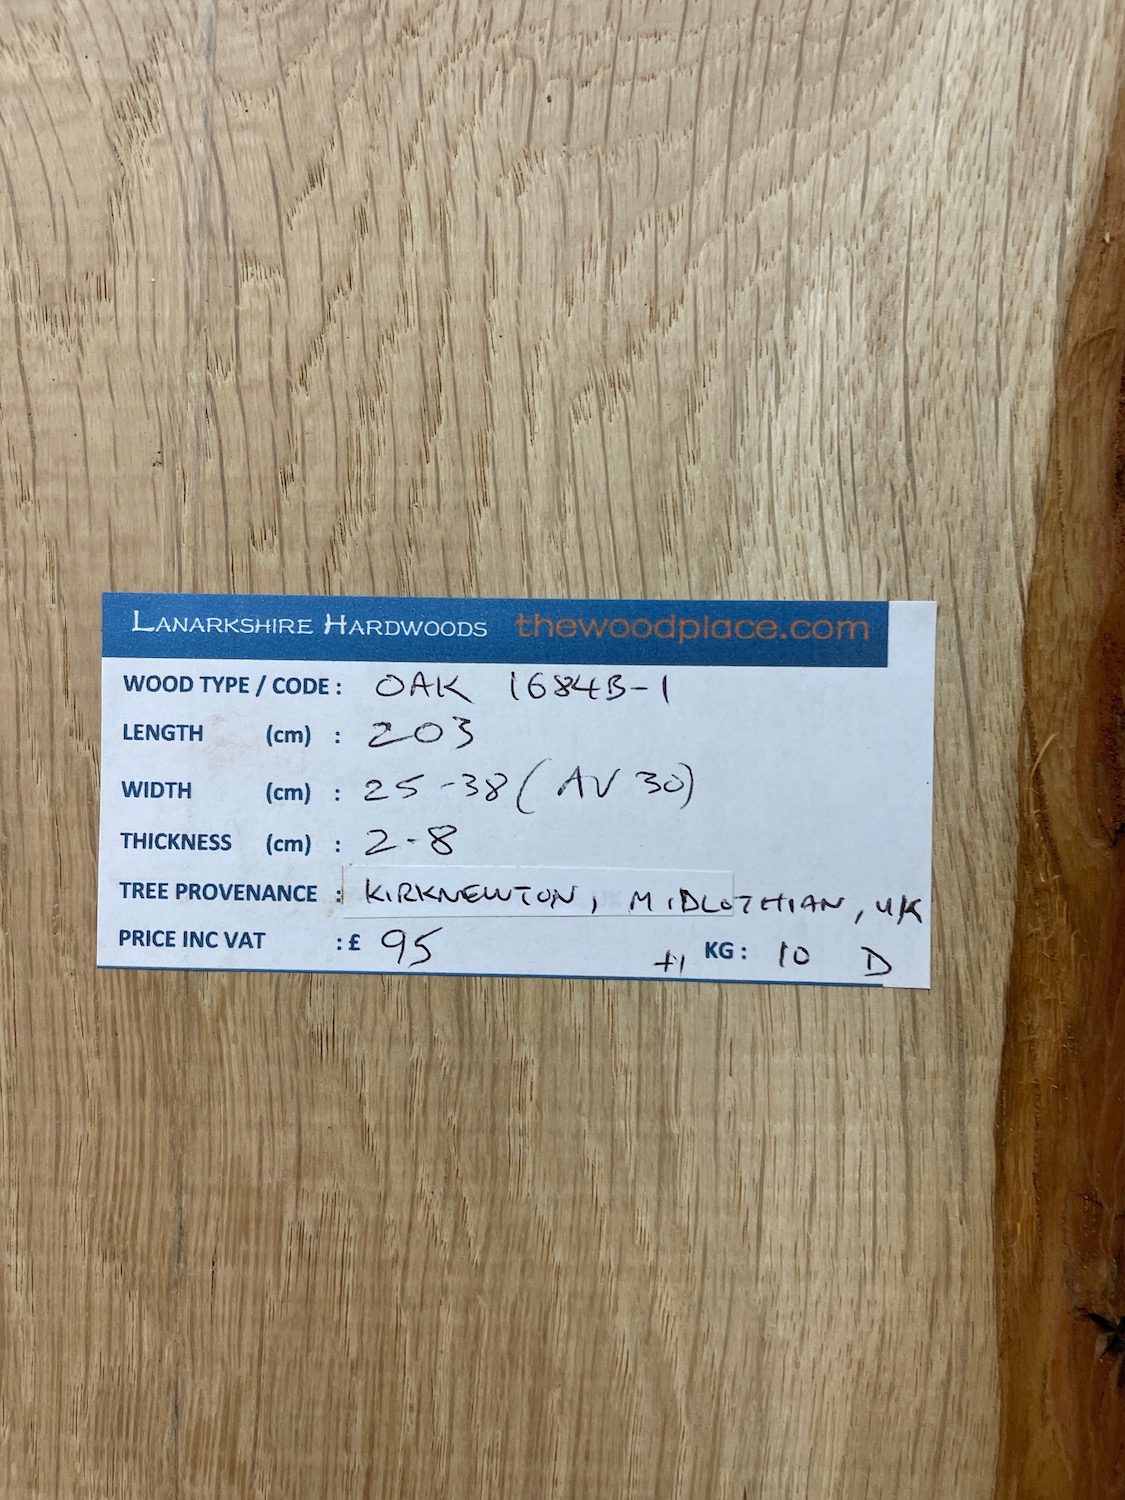 Lanarkshire Hardwoods thewoodplace.com
WOOD TYPE / CODE : OAK 1684B-1
LENGTH (cm) : 203
WIDTH (cm) : 25-38 (AV 30)
THICKNESS (cm) : 2.8
TREE PROVENANCE : KIRKNEWTON, MIDLOTHIAN, UK
PRICE INC VAT : £ 95 +1 KG : 10 D